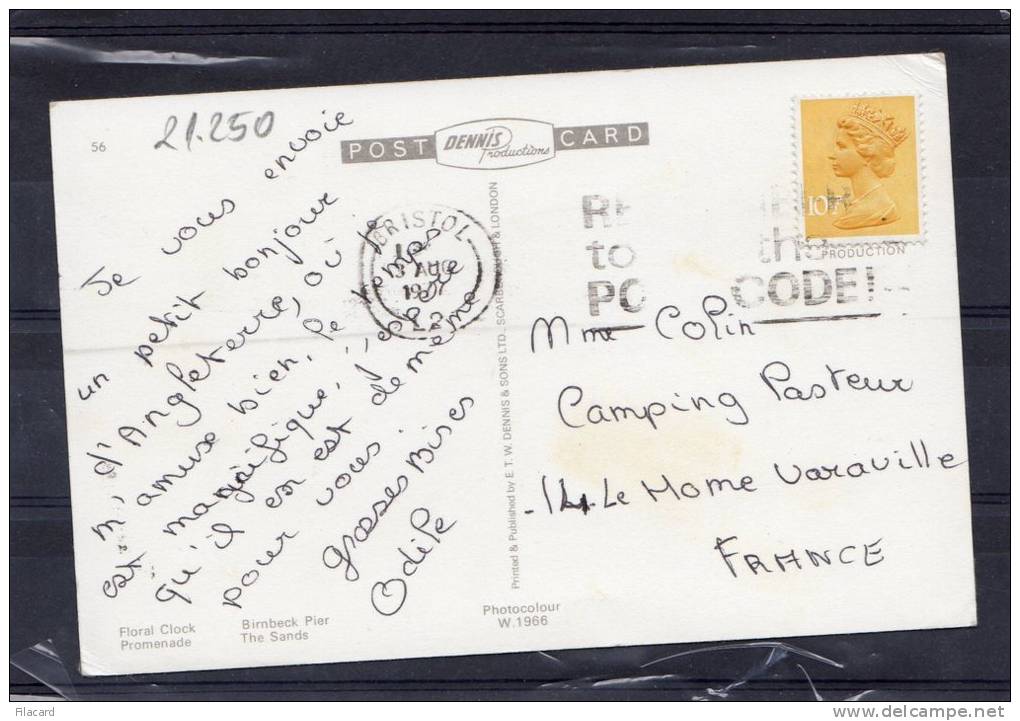 56
21.250
POST DENNIS Productions CARD
Je vous envoie
un petit bonjour
d'Angleterre, où je
m'amuse bien, le temps
est magnifique, j'espère
qu'il en est de même
pour vous.
grosses Bises
Odile
BRISTOL
AUG
to the
CODE!
10½
PRODUCTION
Printed & Published by E. T. W. DENNIS & SONS LTD., SCARBOROUGH & LONDON
Mme Colin
Camping Pasteur
14. Le Home Varaville
FRANCE
Floral Clock Birnbeck Pier
Promenade The Sands
Photocolour
W.1966
Filacard
www.delcampe.net